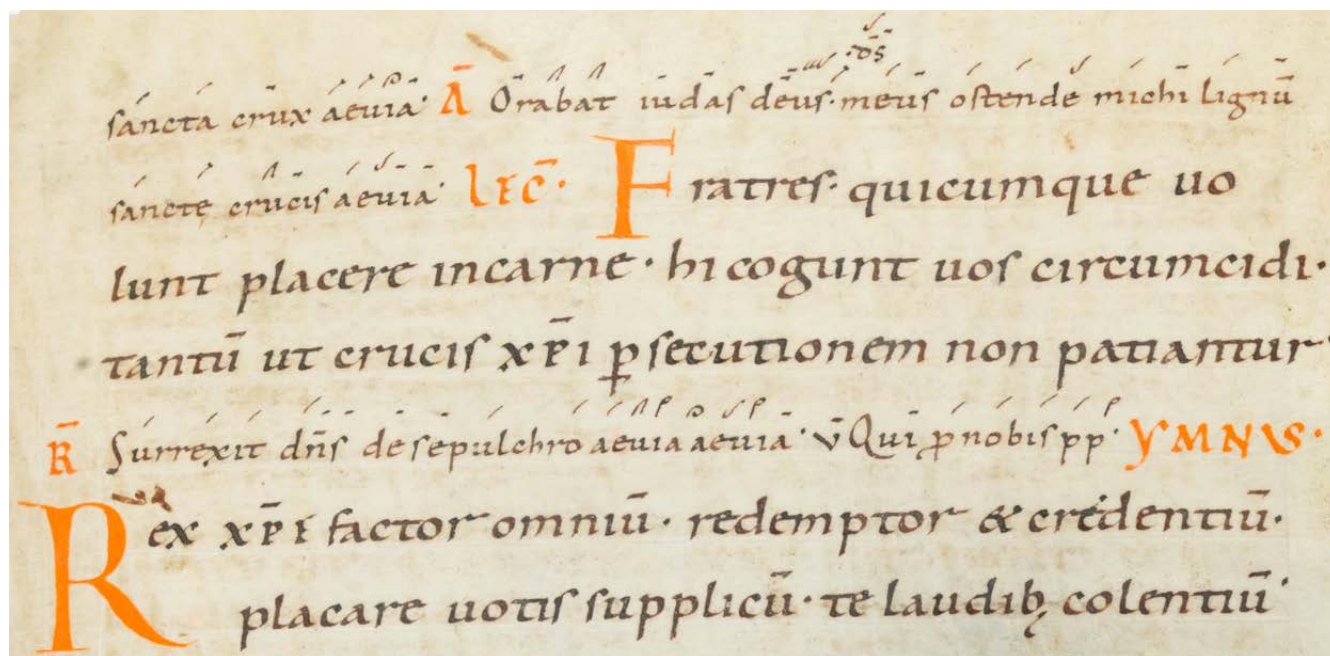 sancta crux aeuia. Ā Orabat iudas deus. meus d̄s ostende michi lignū
sanctę crucis aeuia. LEC̄. Fratres. quicumque uo
lunt placere incarne. hi cogunt uos circumcidi.
tantū ut crucis xp̄i p̲secutionem non patiantur
R̄ Surrexit dn̄s de sepulchro aeuia aeuia. v̄ Qui p̲ nobis pp. YMNVS.
Rex xp̄i factor omniū. redemptor & credentiū.
placare uotis supplicū. te laudibꝫ colentiū.